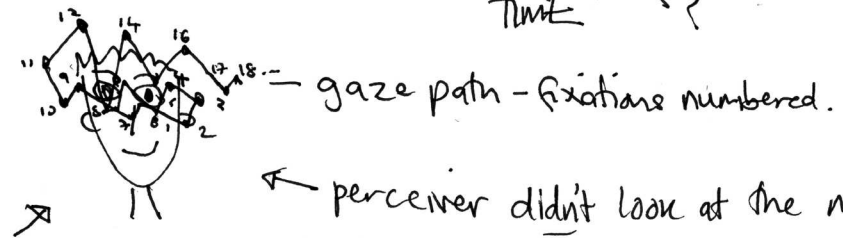 Time ?
12 14 16
11 9 4 17 18...
10 8 7 6 5 1 2 3
gaze path - fixations numbered.
perceiver didn't look at the